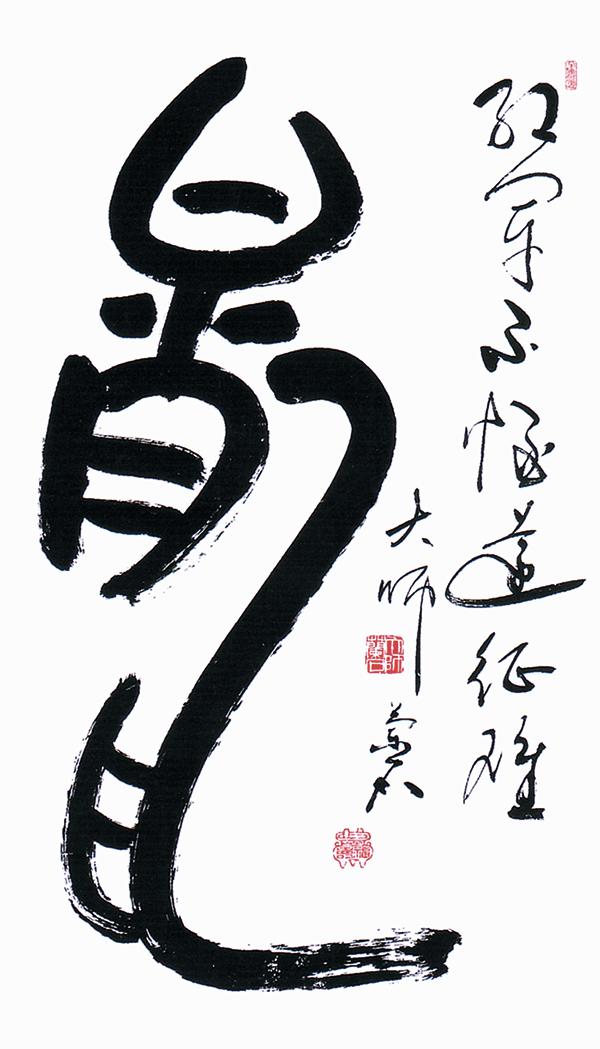 紅軍不怕遠征難
大師
龍